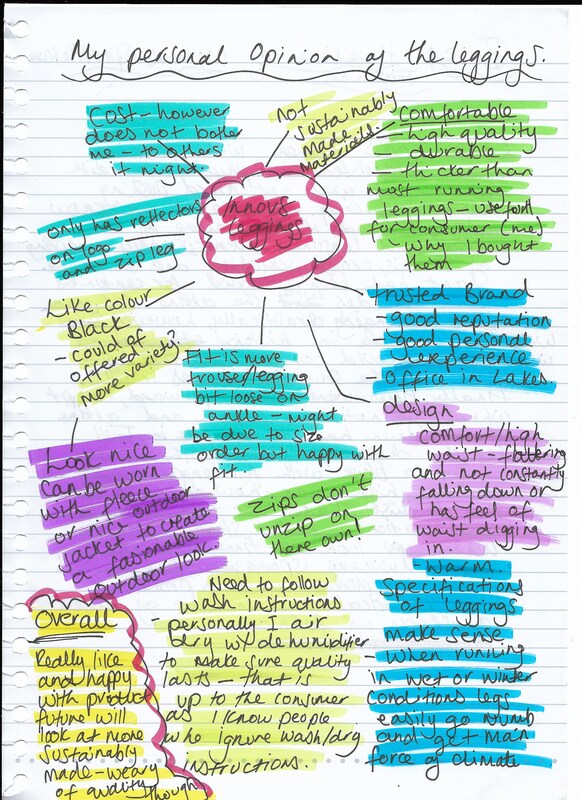 My personal Opinion of the leggings.
Cost - however
does not bother
me - to others
it might.
not
sustainably
made
materials.
Comfortable
- high quality
- durable
- thicker than
most running
leggings - useful
for consumer (me)
why I bought
them
Innov8
leggings
only has reflectors
on logo
and zip leg
Like colour
Black
- could of
offered
more variety?
Fit is more
trouser/legging
bit loose on
ankle - might
be due to size
order but happy with
fit.
trusted Brand
- good reputation
- good personal
experience
- Office in Lakes.
design
comfort/high
waist - flattering
and not constantly
falling down or
has feel of
waist digging
in.
Look nice
can be worn
with fleece
or nice outdoor
jacket to create
a fasionable
outdoor look.
Zips don't
unzip on
there own!
- warm.
Specifications
of leggings
make sense
- When running
in wet or winter
conditions legs
easily go numb
and get main
force of climate
Need to follow
wash instructions
- personally I air
dry w/ dehumidifier
to make sure quality
lasts - that is
up to the consumer
as I know people
who ignore wash/dry
instructions.
Overall
Really like
and happy
with product
future will
look at more
sustainably
made - weary
of quality though